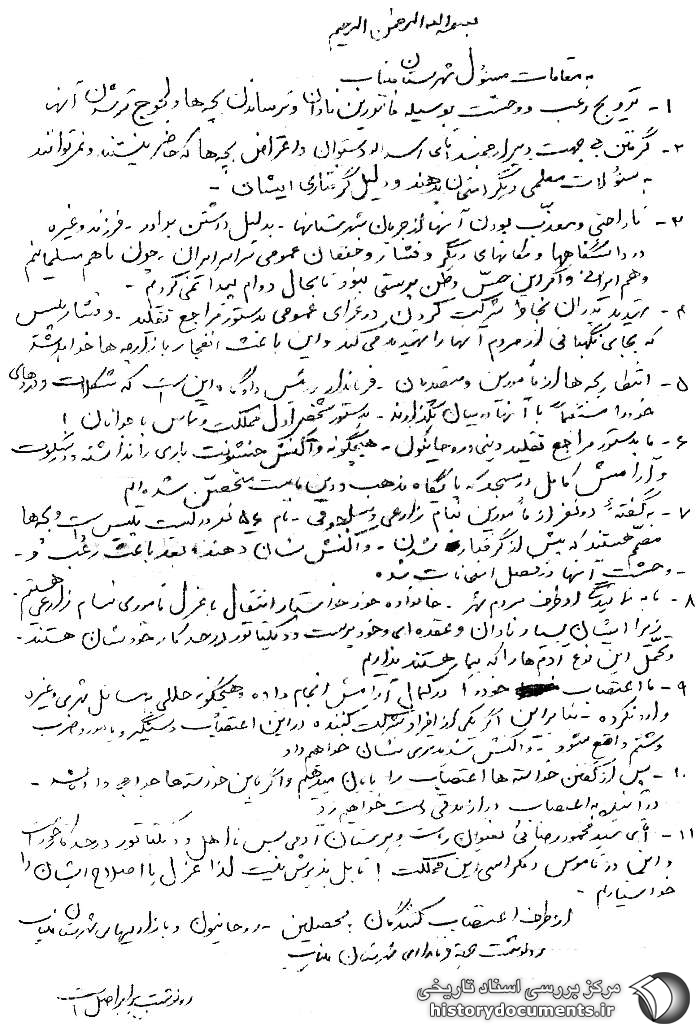 بسمه الله الرحمن الرحیم
به مقامات مسئول شهرستان میناب
۱- ترویج رعب و وحشت بوسیله مأمورین نادان و ترساندن بچه‌ها و لجوج ترشدن آنها
۲- گرفتن بی جهت دبیر ارجمند آقای اسداله و اعتراض بچه‌ها که حاضر نیستند و نمی‌توانند
به سئولات معلمی دیگر امتحان بدهند و دلیل گرفتاری ایشان -
۳- ناراحتی و معذب بودن آنها از جریان شهرستانها - بدلیل داشتن برادر - فرزند و غیره
در دانشگاهها و مکانهای دیگر و فشار و خفقان عمومی سراسر ایران - چون ما هم مسلمانیم
و هم ایرانی و اگر این حس وطن پرستی نبود تابحال دوام پیدا نمی‌کردیم -
۴- تهدید پدران بخاطر شرکت کردن در عزای عمومی بدستور مراجع تقلید - و فشار پلیس
که بجای نگهبانی از مردم آنها را تهدید می‌کند و این باعث انفجار بازار و بچه‌ها خواهد شد
۵- انتظار بچه‌ها از مأمورین و متصدیان - فرماندار رئیس دادگاه این است که مشکلات و دردهای
خود را مستقیماً با آنها در میان بگذارند - بدستور شخص اول مملکت و تماس با جوانان !
۶- ما بدستور مراجع تقلید دینی و روحانیون - هیچگونه واکنش خشونت باری را نداشته و در سکوت
و آرامش کامل در مسجد که پایگاه مذهب و دین ماست متحصن شده‌ایم
۷- به گفته دو نفر از مأمورین بنام زارعی و سلجوقی - نام ۵۶ نفر در لیست پلیس است و بچه‌ها
مصمم هستند که پیش از گرفتار شدن - واکنش نشان دهند، بعد باعث رعب و -
- وحشت آنها در فصل امتحانات شده
۸- بنا به تأیید از طرف مردم شهر - خانواده خود خواستار انتقال یا عزل مأموری بنام زارعی هستیم
زیرا ایشان بسیار نادان و عقده‌ای و خودپرست و دیکتاتور در حد کار خودشان هستند -
و تحمل این نوع آدم‌ها را که بیمار هستند نداریم
۹- ما اعتصاب خود را در کمال آرامش انجام داده و هیچگونه خللی به مسائل شهری و غیره
وارد نکرده - بنابراین اگر یکی از افراد شرکت کننده در این اعتصاب دستگیر و یا مورد ضرب
و شتم واقع شود - واکنش شدیدتری نشان خواهیم داد
۱۰- پس از گفتن خواسته‌ها اعتصاب را پایان میدهیم و اگر به این خواسته‌ها جواب داده نشد -
در آینده به اعتصاب دراز مدتی دست خواهیم زد
۱۱- آقای سید محمود رضائی بعنوان ریاست دبیرستان آدمی بس نااهل و دیکتاتور در حد کار خود است
و این در قاموس دمکراسی این مملکت ! قابل پذیرش نیست لذا عزل یا اصلاح ایشان را
خواستاریم -
از طرف اعتصاب کنندگان - محصلین - روحانیون و بازاریهای شهرستان میناب
رونوشت جهت فرمانداری شهرستان میناب
رونوشت برابر اصل است
مرکز بررسی اسناد تاریخی
historydocuments.ir